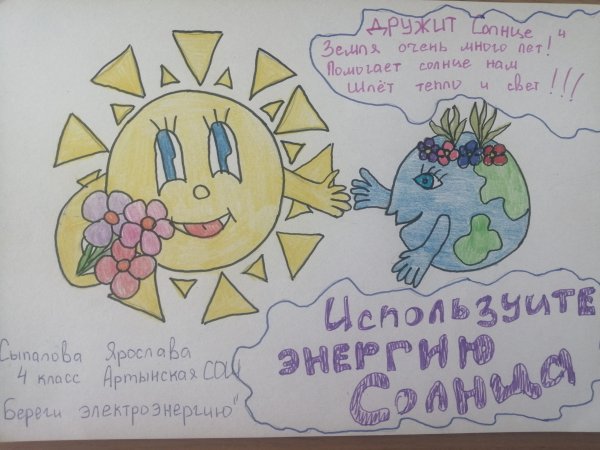 ДРУЖИТ Солнце и
Земля очень много лет!
Помогает солнце нам
Шлёт тепло и свет!!!
Используйте
ЭНЕРГИЮ
Солнца
Сыпалова Ярослава
4 класс Артынская СОШ
Береги электроэнергию"